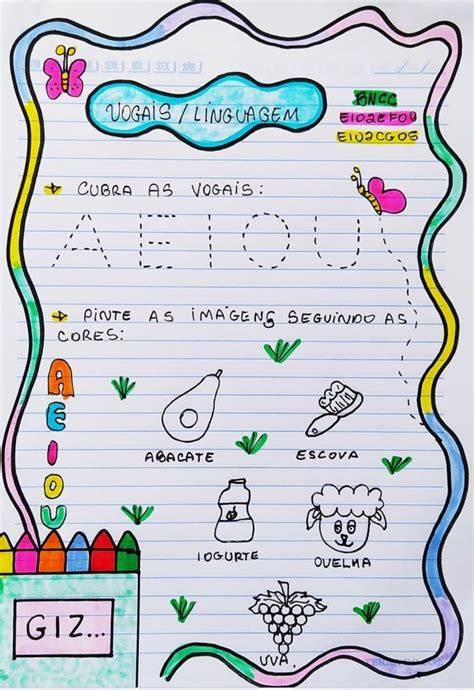 QUA QUI SEX SÁB
VOGAIS / LINGUAGEM
BNCC
EI02EF09
EI02CG05
CUBRA AS VOGAIS:
A E I O U
PINTE AS IMÁGENS SEGUINDO AS
CORES:
A
E
I
O
U
ABACATE
ESCOVA
IOGURTE
OVELHA
UVA.
GIZ...